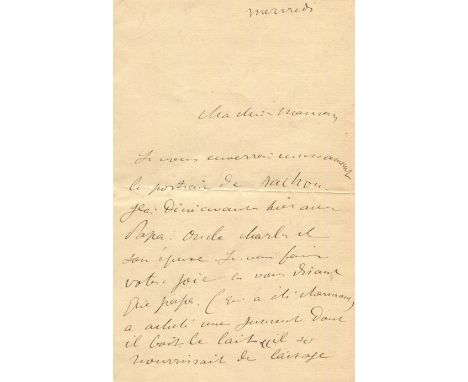 mercredi
Ma chère Maman,
Je vous enverrai incessamment
le portrait de Rachou.
J'ai Diné avant hier avec
Papa. Oncle Charles et
son épouse. Je veux faire
votre joie en vous disant
que papa. (qui a été charmant)
a acheté une jument dont
il boit le lait « il se
nourrissait de laitage